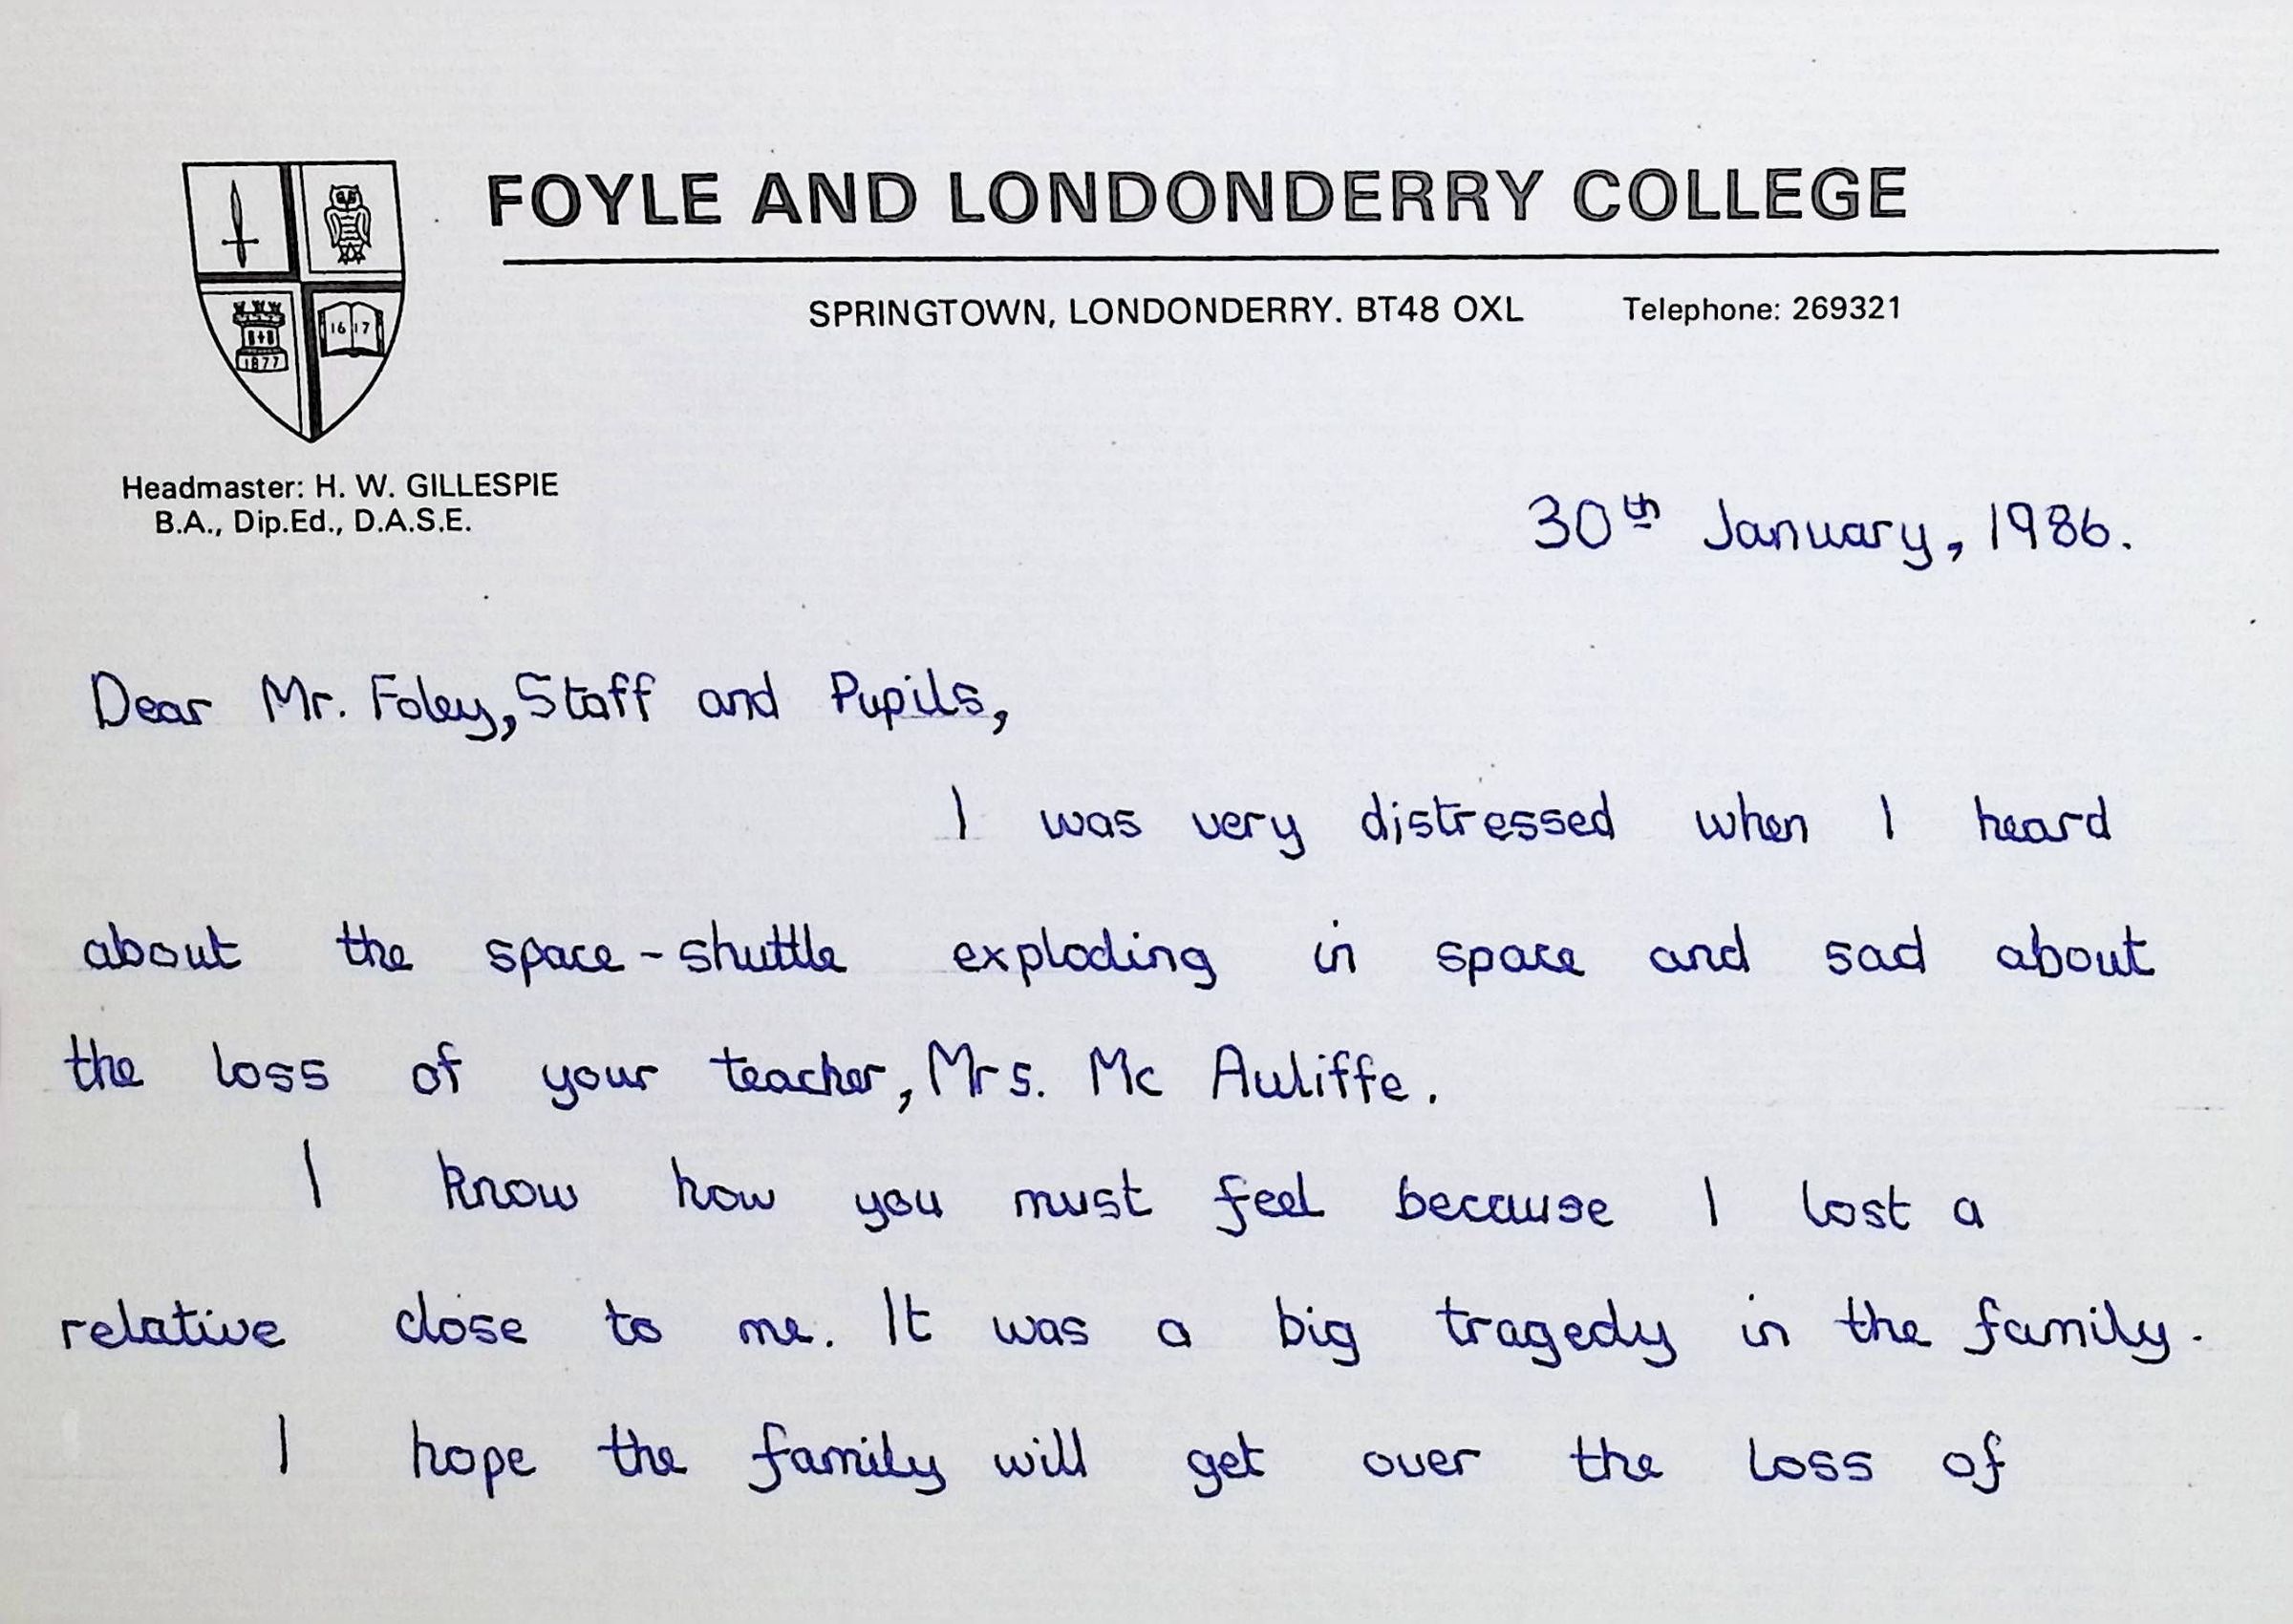 FOYLE AND LONDONDERRY COLLEGE
SPRINGTOWN, LONDONDERRY. BT48 OXL Telephone: 269321
16 17
1877
Headmaster: H. W. GILLESPIE
B.A., Dip.Ed., D.A.S.E.
30th January, 1986.
Dear Mr. Foley, Staff and Pupils,
I was very distressed when I heard
about the space-shuttle exploding in space and sad about
the loss of your teacher, Mrs. Mc Auliffe.
I know how you must feel because I lost a
relative close to me. It was a big tragedy in the family.
I hope the family will get over the loss of